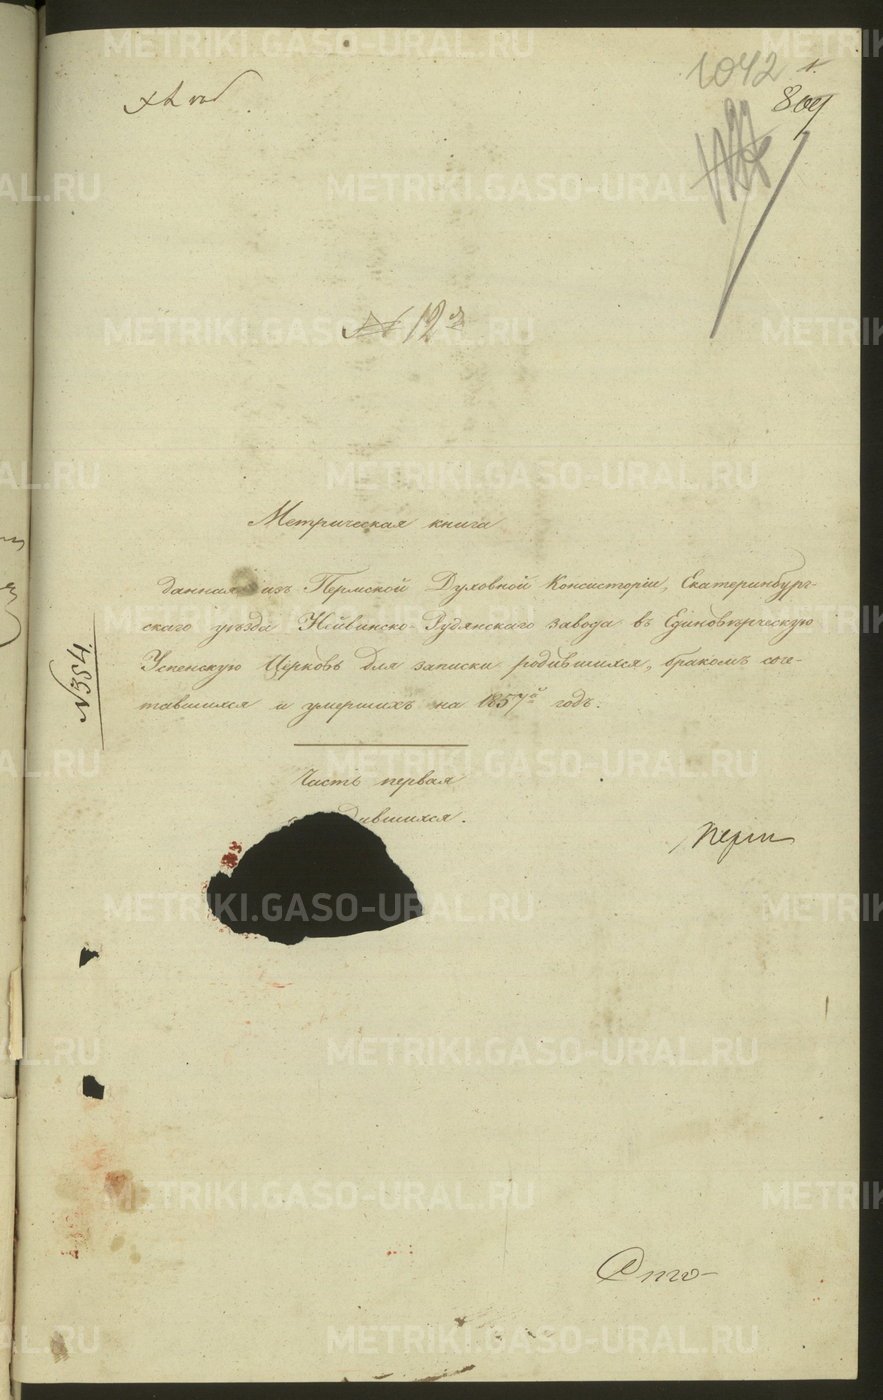 1042
1.
809
№ 12й
Метрическая книга
данная изъ Пермской Духовной Консисторіи, Екатеринбург-
скаго уѣзда Нейвинско-Рудянскаго завода въ Единовѣрческую
Успенскую Церковь для записки родившихся, бракомъ соче-
тавшихся и умершихъ на 1857й годъ.
№354.
Часть первая
дившихся.
METRIKI.GASO-URAL.RU